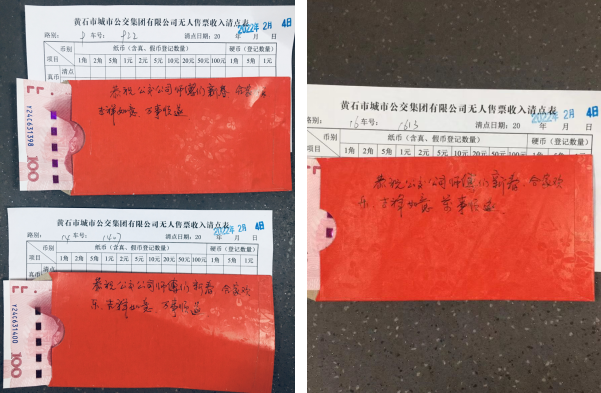 黄石市城市公交集团有限公司无人售票收入清点表
2022年2月 4日
路别: 8 车号: 822 清点日期: 20 年 月 日
币别 纸币(含真、假币登记数量) 硬币(登记数量)
项目 1角 2角 5角 1元 2元 5元 10元 20元 50元 100元 1角 5角 1元
真币 清点
恭祝公交公司师傅们新春 合家欢
吉祥如意 万事恒通
YZ4C631398
100
黄石市城市公交集团有限公司无人售票收入清点表
2022年2月 4日
路别: 14 车号: 1407 清点日期: 20 年 月 日
币别 纸币(含真、假币登记数量) 硬币(登记数量)
项目 1角 2角 5角 1元 2元 5元 10元 20元 50元 100元 1角 5角 1元
真币 清点
恭祝公交公司师傅们新春 合家欢
乐、吉祥如意 万事恒通
YZ4C631400
100
黄石市城市公交集团有限公司无人售票收入清点表
2022年2月 4日
路别: 16 车号: 1613 清点日期: 20 年 月 日
币别 纸币(含真、假币登记数量) 硬币(登记数量)
1角 2角 5角 1元 2元 5元 10元 20元 50元 100元 1角 5角
恭祝公交公司师傅们新春、合家欢
乐、吉祥如意 万事恒通